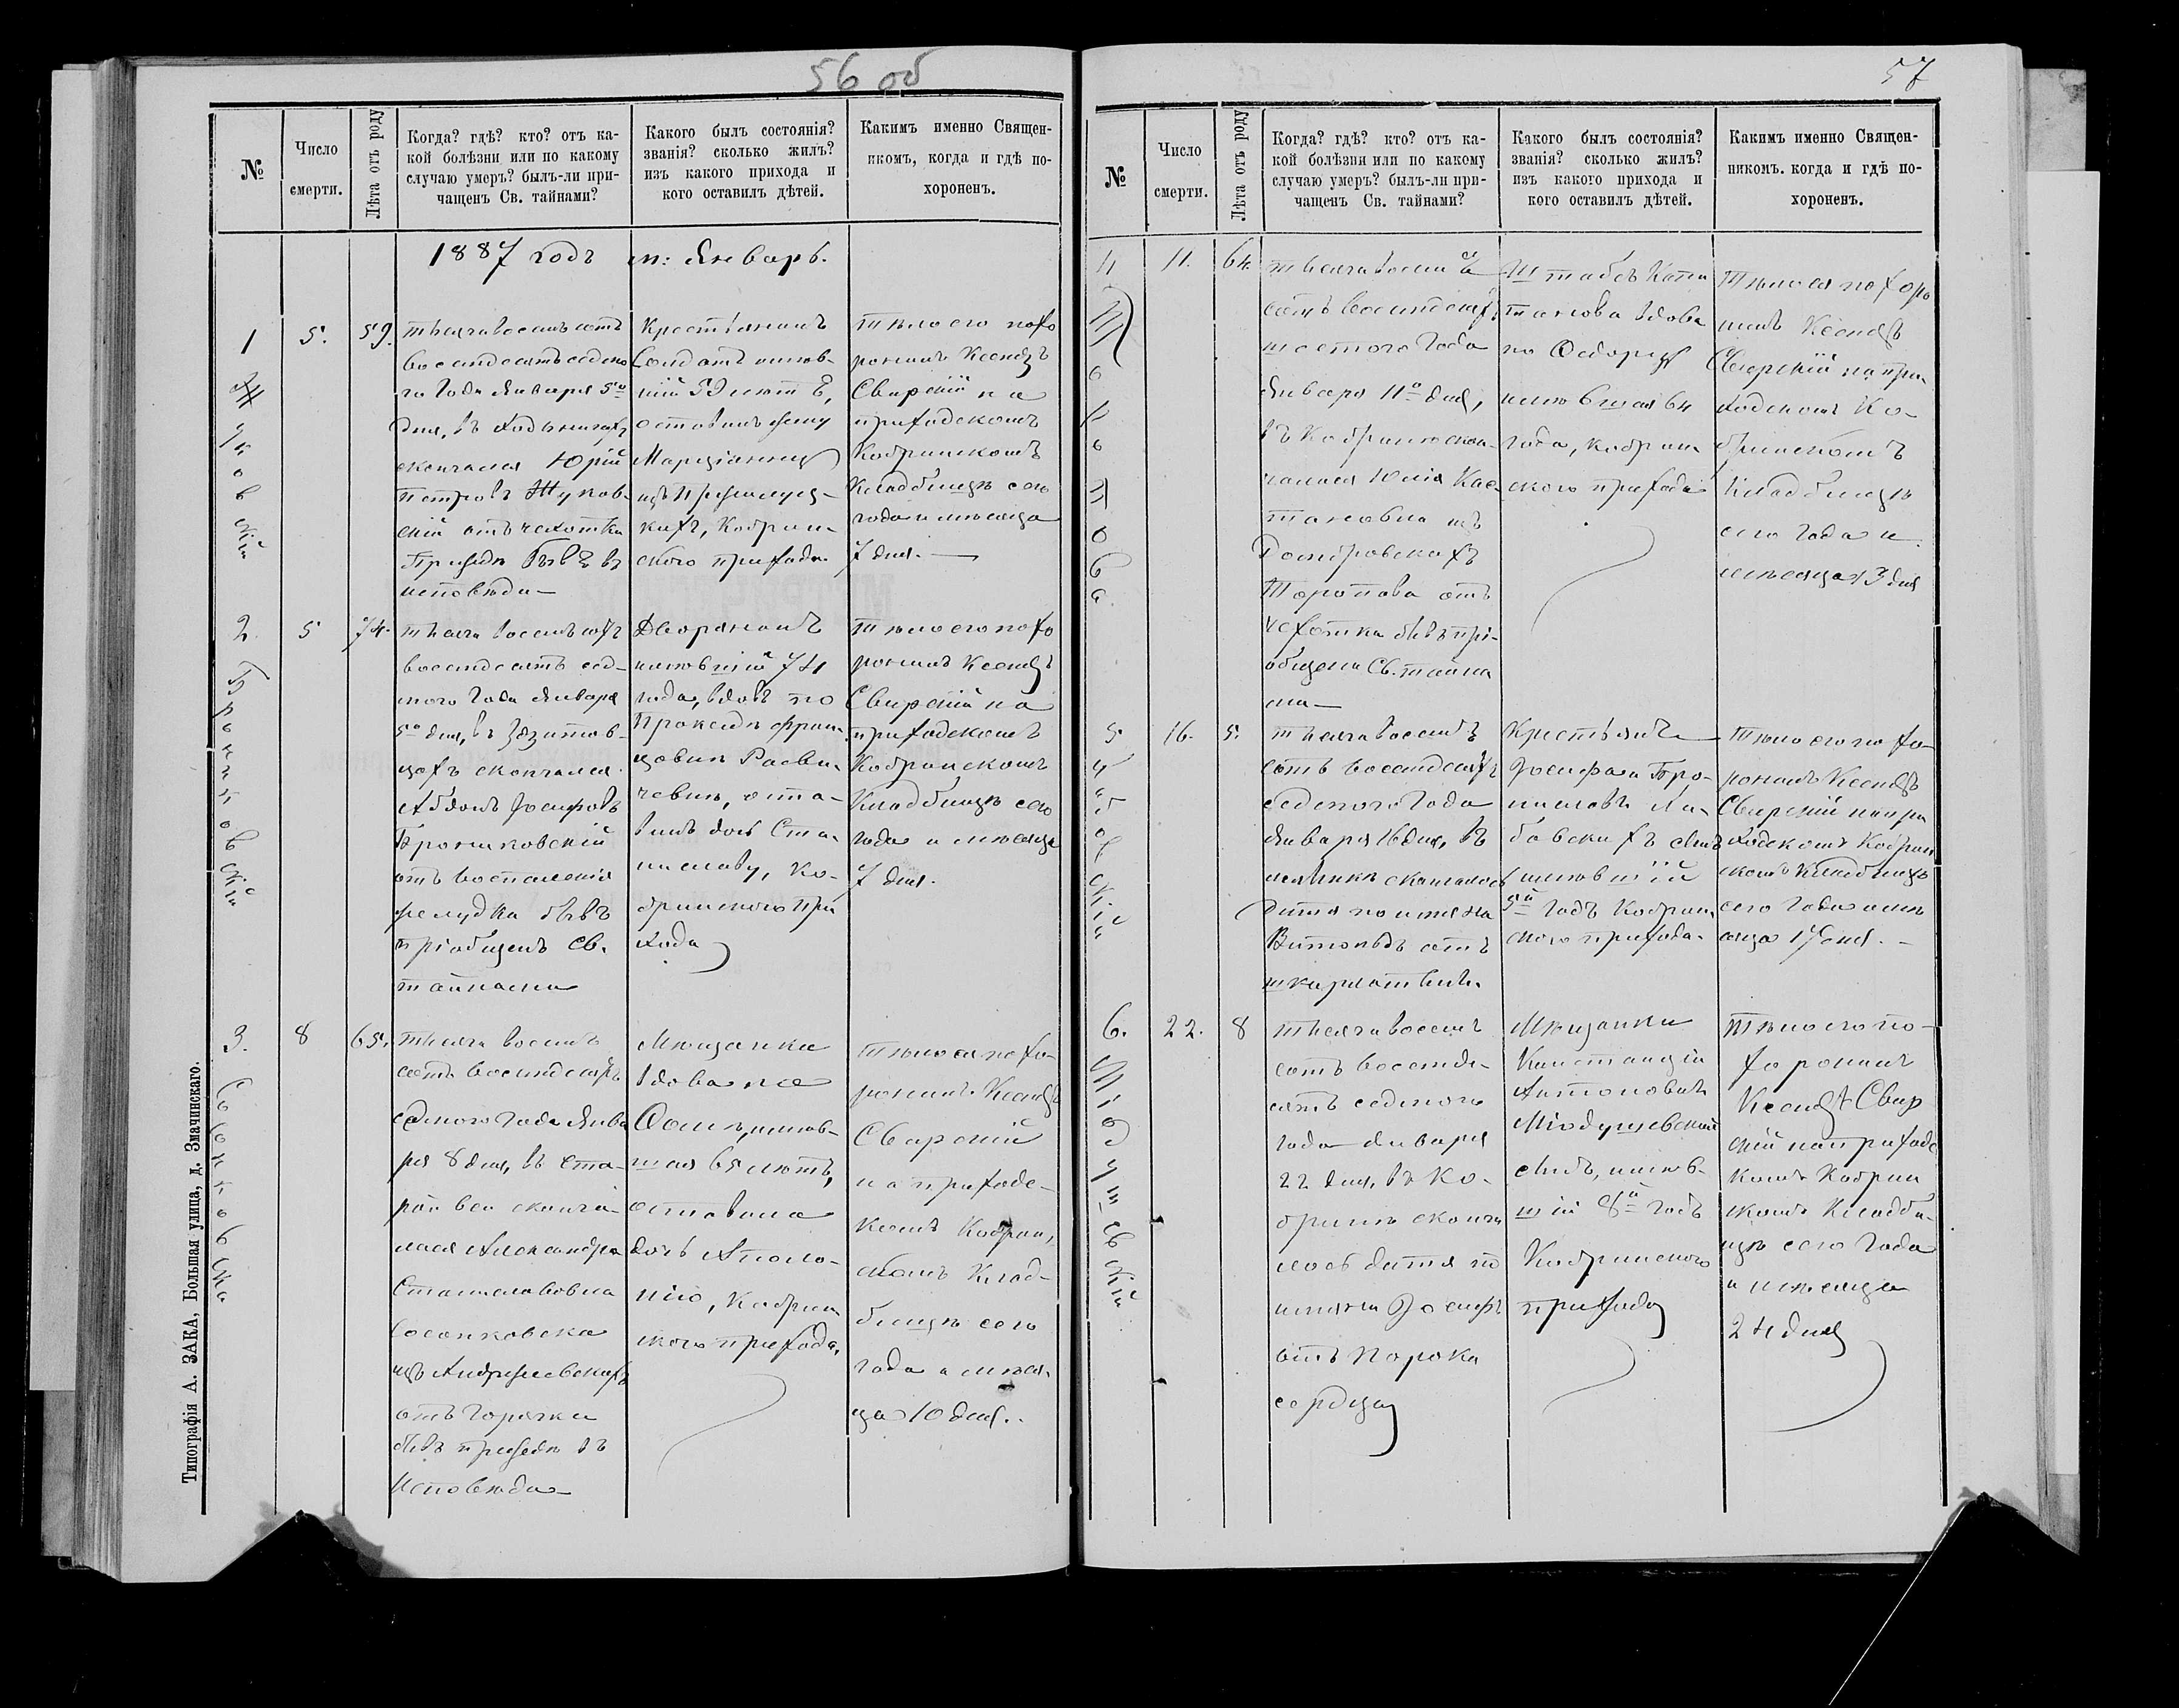 56 об
№
Число
смерти.
Лѣта отъ роду
Когда? гдѣ? кто? отъ ка-
кой болѣзни или по какому
случаю умеръ? былъ-ли при-
чащенъ Св. тайнами?
Какого былъ состоянія?
званія? сколько жилъ?
изъ какого прихода и
кого оставилъ дѣтей.
Какимъ именно Священ-
никомъ, когда и гдѣ по-
хороненъ.
1887 годъ м: Январь.
1
Жуковскій
5.
59.
тысяча восемь сотъ
восемдесятъ седмо
го Года Января 5го
дня, въ
скончался Юрій
Петровъ Жуков-
скій отъ чахотки
бывъ въ
исповѣди
Крестьянинъ
Солдатъ имѣв-
шій 59 лѣтъ,
оставилъ жену
Марціанну
изъ
кихъ, Кобрин-
скаго прихода
тѣло его похо
ронилъ Ксендзъ
Свирскій на
приходскомъ
Кобринскомъ
Кладбищѣ сего
года и мѣсяца
7 дня.
2.
Брониковскій
5
74.
тысяча восемь сотъ
восемдесятъ сед-
мого Года Января
5го дня, въ
цахъ скончался
Абдонъ Іосифовъ
Брониковскій
отъ воспаленія
желудка бывъ
пріобщенъ Св.
тайнами
Дворянинъ
имѣвшій 74
года, вдовъ по
Франц
цовнѣ
чевнѣ, оста-
вилъ дочь Ста-
ниславу, Ко-
бринскаго при
хода
тѣло его похо
ронилъ Ксендзъ
Свирскій на
приходскомъ
Кобринскомъ
Кладбищѣ сего
года и мѣсяца
7 дня.
3.
Сосонковска
8
65.
тысяча восемь
сотъ восемдесятъ
седмого Года Янва
ря 8 дня, въ Ста-
рой вси сконча-
лася Александра
Станиславовна
Сосонковска
изъ Андржеевскихъ
отъ горячки
бывъ въ
Исповѣди
Мѣщанка
вдова по
имѣв-
шая 65 лѣтъ,
оставила
дочь Аполо-
нію, Кобрин
скаго прихода.
тѣло ея похо-
ронилъ Ксендзъ
Свирскій
на приходс-
комъ Кобрин,
скомъ Клад-
бищѣ сего
года и мѣся-
ца 10 дня.
Типографія А. ЗАКА, Большая улица, д. Змачинскаго.
57
№
Число
смерти.
Лѣта отъ роду
Когда? гдѣ? кто? отъ ка-
кой болѣзни или по какому
случаю умеръ? былъ-ли при-
чащенъ Св. тайнами?
Какого былъ состоянія?
званія? сколько жилъ?
изъ какого прихода и
кого оставилъ дѣтей.
Какимъ именно Священ-
никомъ. когда и гдѣ по-
хороненъ.
4
11.
64.
тысяча восемь
сотъ восемдесятъ
шестого Года
Января 11го дня,
въ Кобринѣ скон-
чалася Юлія Кае-
тановна изъ
Домбровскихъ
Торопова отъ
чахотки бывъ прі-
общена Св. тайна
ми
Штабсъ Капи
танова вдова
по Ѳедорѣ
имѣвшая 64
года, Кобрин
скаго прихода
Тѣло ея похоро
нилъ Ксендзъ
Свирскій на при
ходскомъ Ко-
бринскомъ
Кладбищѣ
сего года и
мѣсяца 13 дня
5
16.
5.
тысяча восемь
сотъ восемдесятъ
седмого Года
Января 16 дня, въ
скончалось
дитя по имени
Витольдъ отъ
шкарлатины.
Крестьянъ
Іосифа и Бро-
ниславы
бовскихъ сынъ
имѣвшій
5й годъ Кобрин
скаго прихода.
Тѣло его похо-
ронилъ Ксендзъ
Свирскій на при
ходскомъ Кобрин
скомъ Кладбищѣ
сего Года и мѣ
сяца 17 дня.
6.
Міодушевскій
22.
8
тысяча восемь
сотъ восемде-
сятъ седмого
года Января
22 дня, въ Ко-
бринѣ сконча
лось дитя по
имени Іосифъ
отъ порока
сердца
Мѣщанки
Констанціи
Антоновны
Міодушевской
сынъ, имѣв-
шій 8й годъ
Кобринскаго
прихода
Тѣло его по-
хоронилъ
Ксендзъ Свир
скій на приходс
комъ Кобрин
скомъ Кладби-
щѣ сего Года
и мѣсяца
24 дня